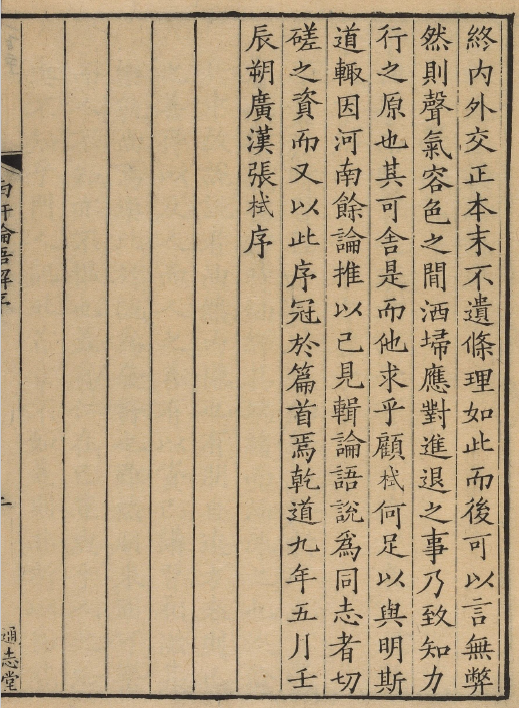 終内外交正本末不遺條理如此而後可以言無弊
然則聲氣容色之間洒埽應對進退之事乃致知力
行之原也其可舍是而他求乎顧栻何足以與明斯
道輙因河南餘論推以己見輯論語說爲同志者切
磋之資而又以此序冠於篇首焉乾道九年五月壬
辰朔廣漢張栻序
論語解序
通志堂